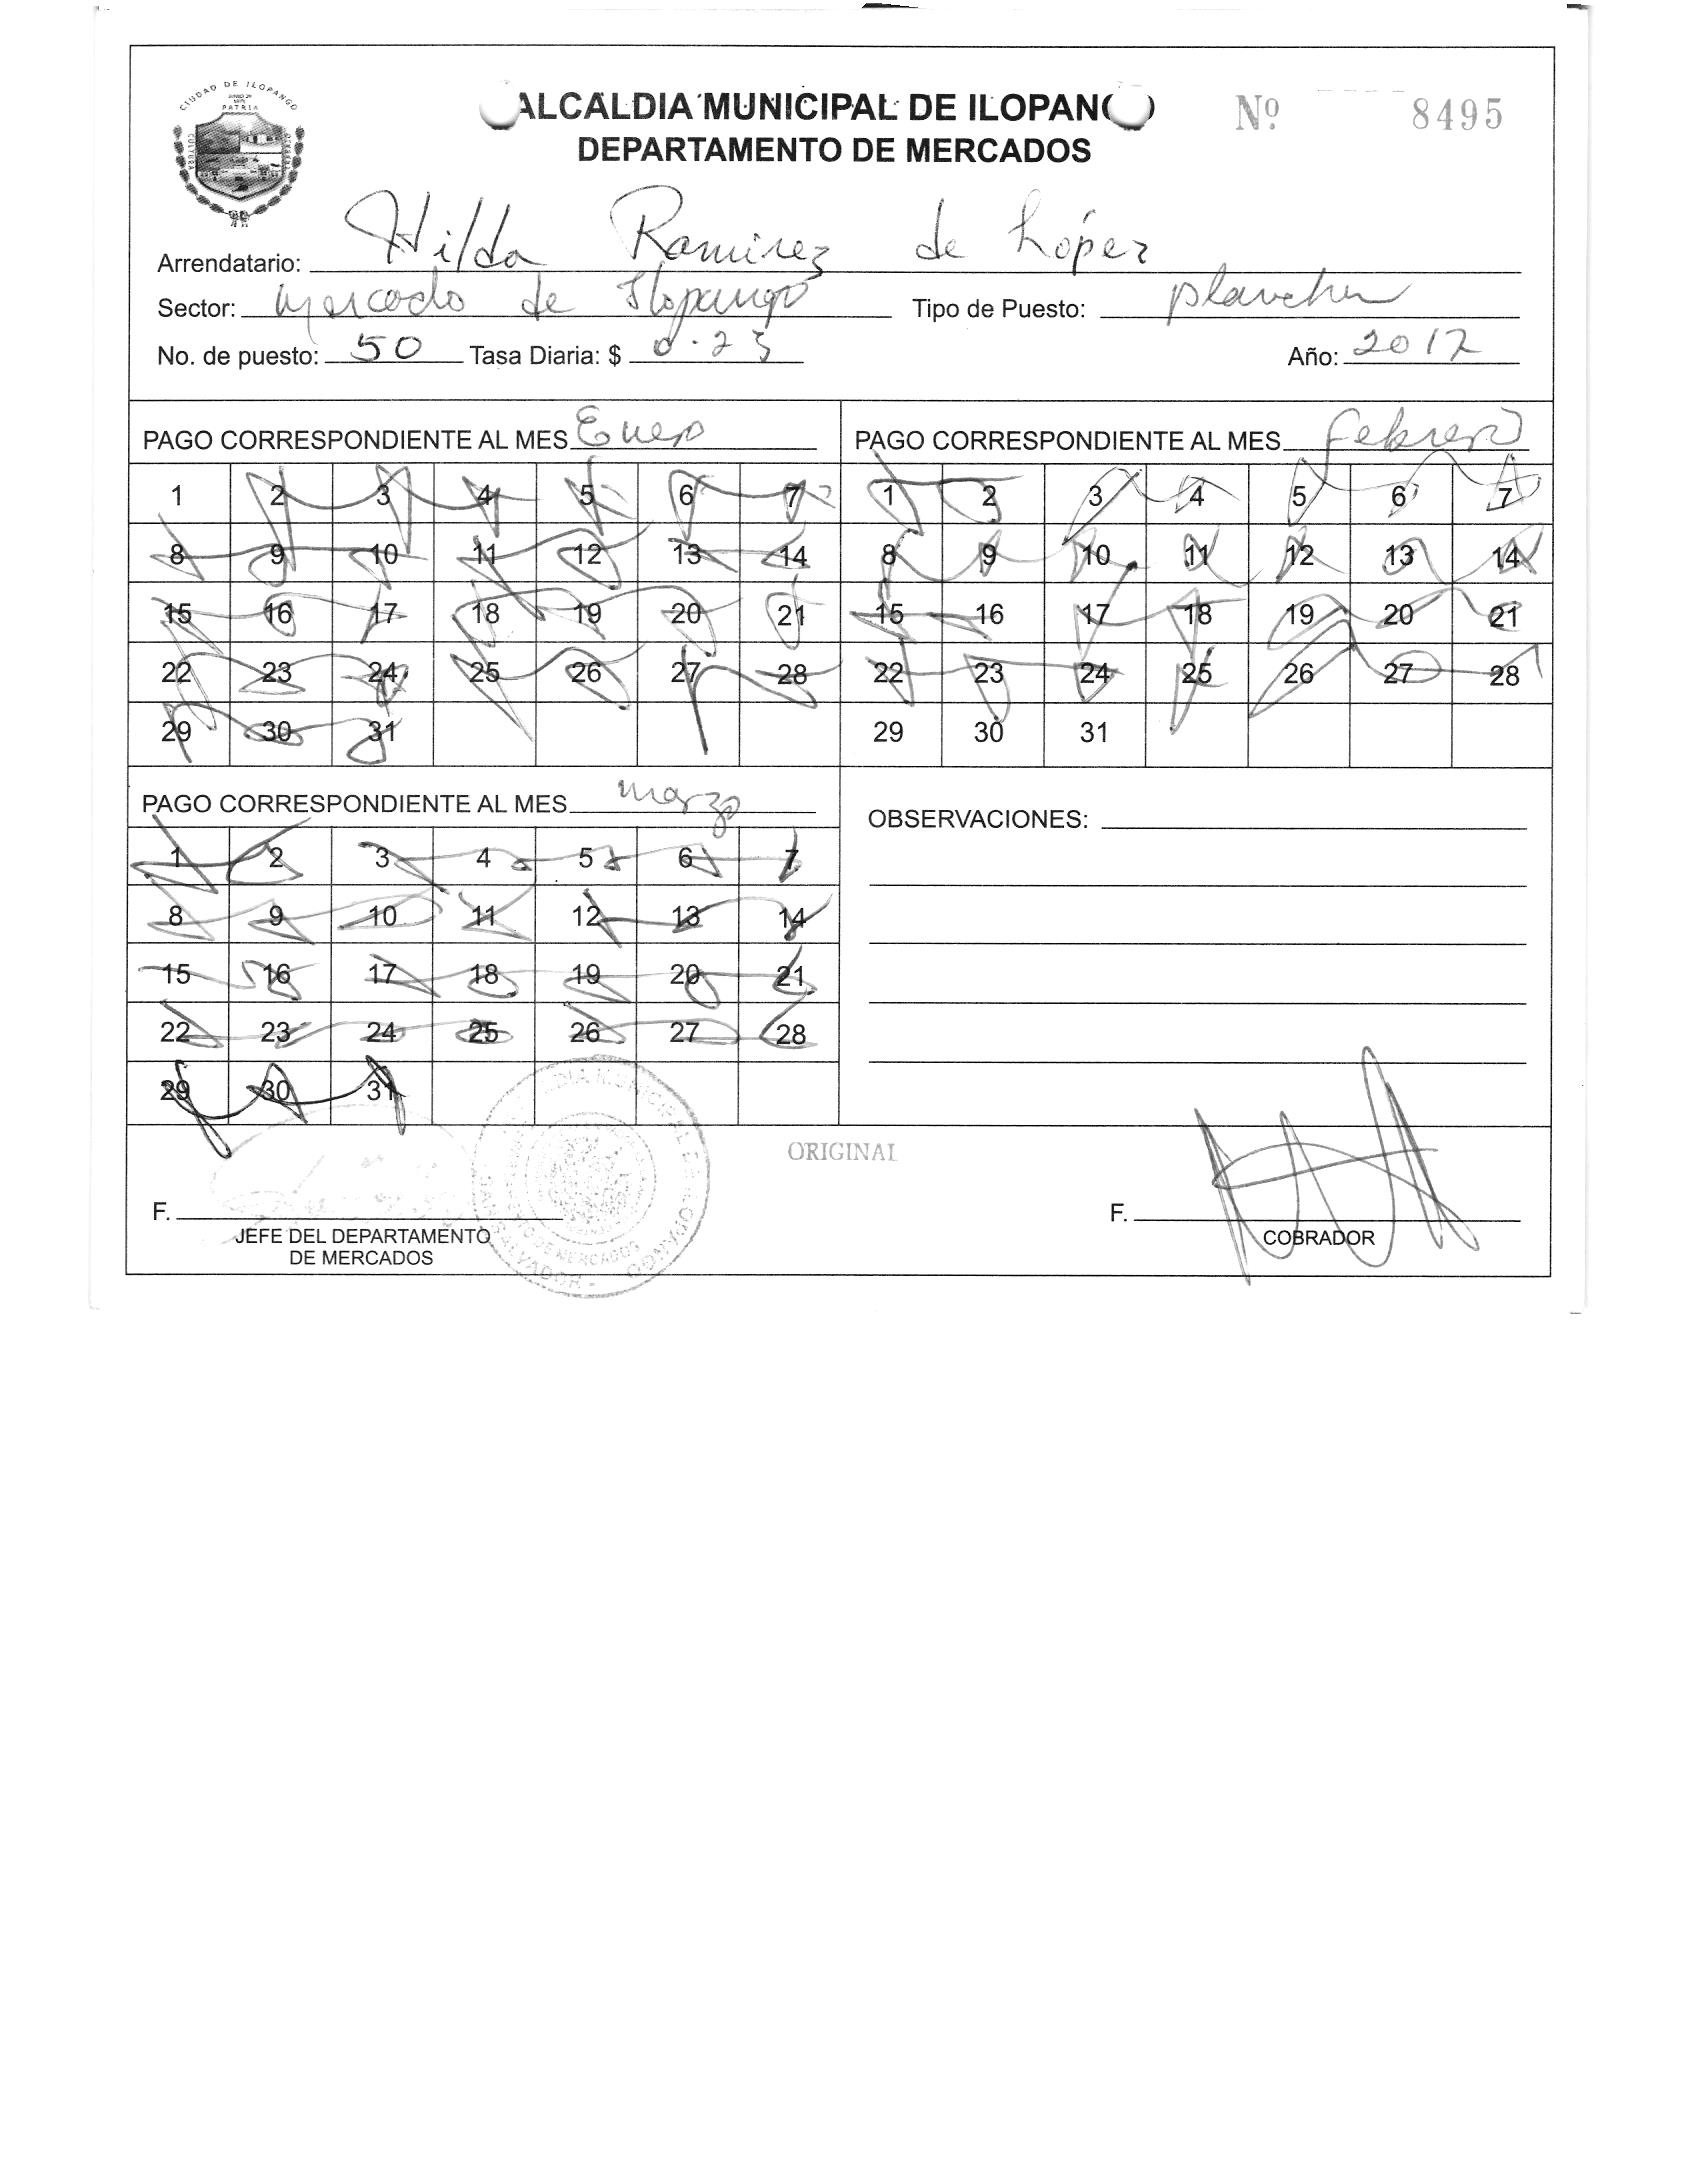 CIUDAD DE ILOPANGO
PATRIA
CULTURA
ALCALDIA MUNICIPAL DE ILOPANGO
Nº 8495
DEPARTAMENTO DE MERCADOS
Arrendatario: Hilda Ramirez de López
Sector: Mercado de Ilopango Tipo de Puesto: plancha
No. de puesto: 50 Tasa Diaria: $ 0.23 Año: 2017
PAGO CORRESPONDIENTE AL MES Enero
1 2 3 4 5 6 7
8 9 10 11 12 13 14
15 16 17 18 19 20 21
22 23 24 25 26 27 28
29 30 31
PAGO CORRESPONDIENTE AL MES Febrero
1 2 3 4 5 6 7
8 9 10 11 12 13 14
15 16 17 18 19 20 21
22 23 24 25 26 27 28
29 30 31
PAGO CORRESPONDIENTE AL MES marzo
1 2 3 4 5 6 7
8 9 10 11 12 13 14
15 16 17 18 19 20 21
22 23 24 25 26 27 28
29 30 31
OBSERVACIONES:
ORIGINAL
F.
JEFE DEL DEPARTAMENTO
DE MERCADOS
F.
COBRADOR